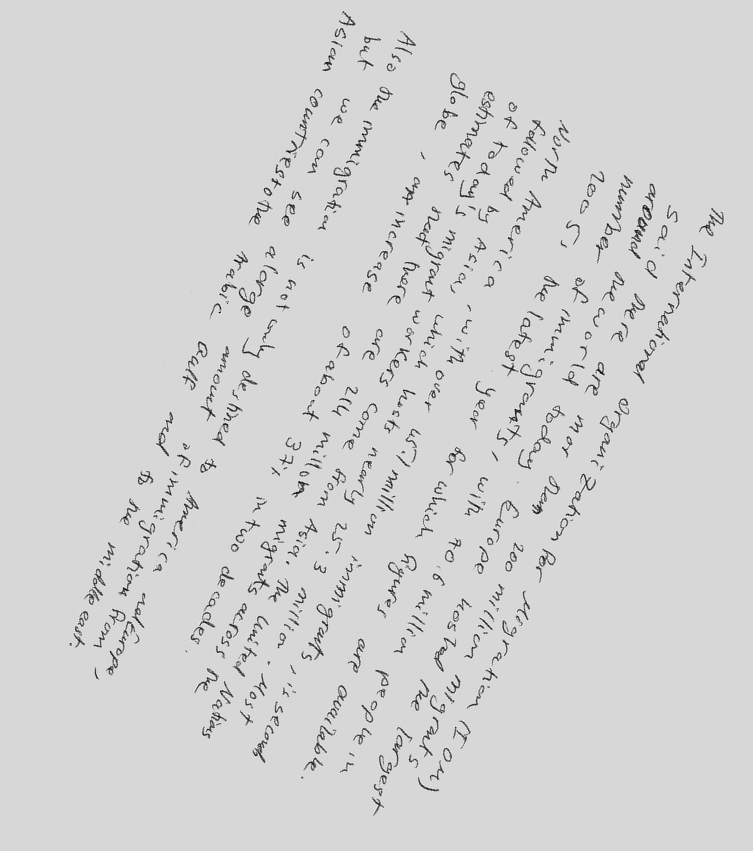 The International Organization for Migration (IOM)
said there are mor than 200 million migrants
around the world today. Europe hosted the largest
number of immigrants, with 70.6 million people in
2005, the latest year for which figures are available.
North America, with over 45.1 million immigrants, is second
followed by Asia, which hosts nearly 25.3 million. Most
of today's migrant workers come from Asia. The United Nations
estimates that there are 214 million migrants across the
globe, an increase of about 37% in two decades.
Also the immigration is not only destined to America and Europe,
but we can see a large amount of immigration from
Asian countries to the Arabic Gulf and to the middle east.